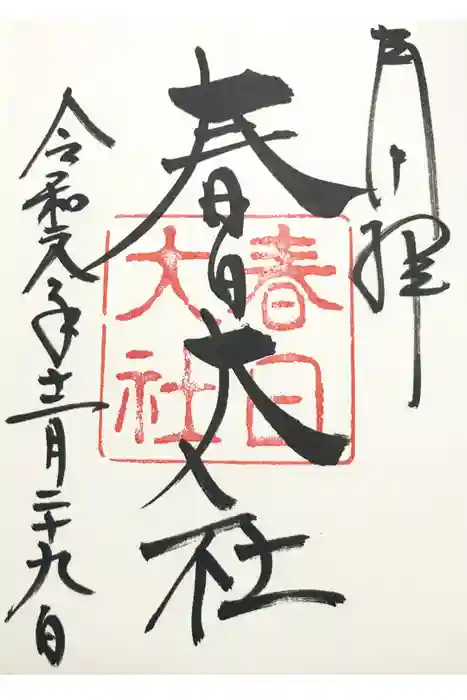 春日大社
春日
大社
令和元年十二月二十九日